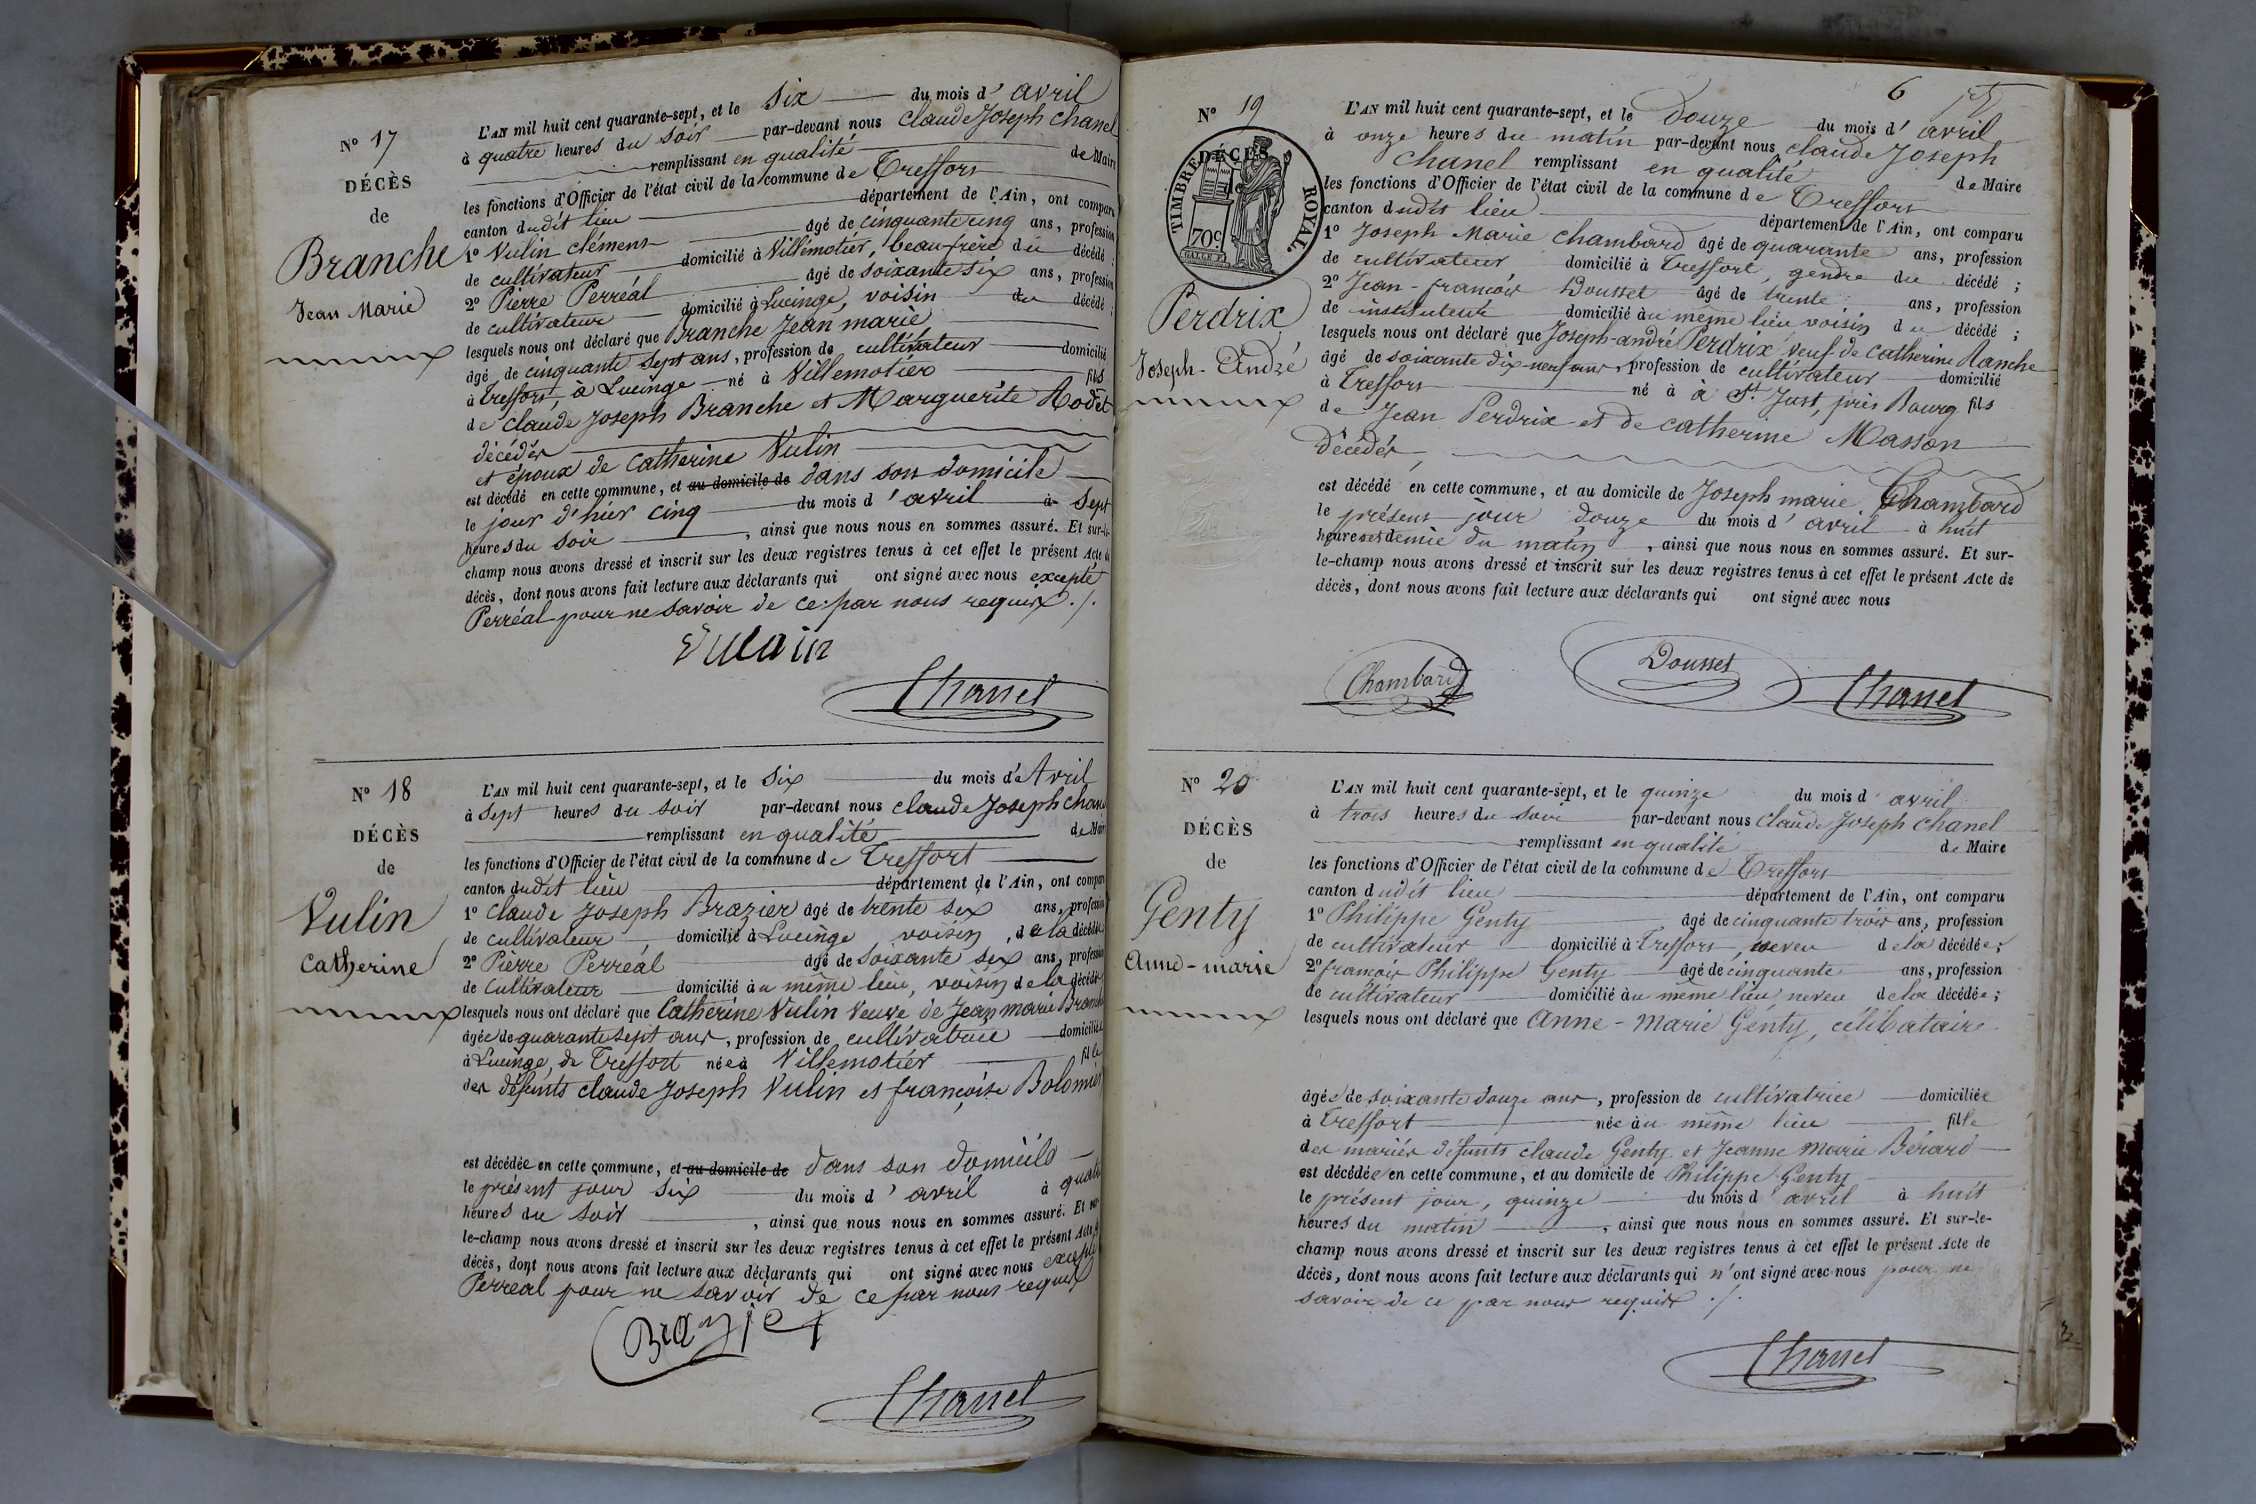 N° 17
DÉCÈS
de
Branche
Jean Marie
L'AN mil huit cent quarante-sept, et le six du mois d'avril
à quatre heures du soir par-devant nous Claude Joseph Chanel
remplissant en qualité de Maire
les fonctions d'Officier de l'état civil de la commune de Treffort
canton dudit lieu département de l'Ain, ont comparu
1° Vulin clémens agé de cinquante cinq ans, profession
de cultivateur domicilié à Villemotier, beaufrère du décédé;
2° Pierre Perréal agé de soixante six ans, profession
de cultivateur domicilié à Lucinge, voisin du décédé;
lesquels nous ont déclaré que Branche Jean marie
âgé de cinquante sept ans, profession de cultivateur domicilié
à Treffort, à Lucinge né à Villemotier fils
de Claude Joseph Branche et Marguerite Rodet
décédés
et époux de Catherine Vulin
est décédé en cette commune, et au domicile de dans son domicile
le jour d'hier cinq du mois d'avril à sept
heures du soir, ainsi que nous nous en sommes assuré. Et sur-le-
champ nous avons dressé et inscrit sur les deux registres tenus à cet effet le présent Acte de
décès, dont nous avons fait lecture aux déclarants qui ont signé avec nous excepté
Perréal pour ne savoir de ce par nous requis ./.
Vulain
Chanel
N° 18
DÉCÈS
de
Vulin
Catherine
L'AN mil huit cent quarante-sept, et le six du mois d'Avril
à sept heures du soir par-devant nous Claude Joseph Chanel
remplissant en qualité de Maire
les fonctions d'Officier de l'état civil de la commune de Treffort
canton dudit lieu département de l'Ain, ont comparu
1° Claude Joseph Brazier agé de trente six ans, profession
de cultivateur, domicilié à Lucinge, voisin, de la décédée
2° Pierre Perréal agé de soixante six ans, profession
de Cultivateur domicilié au même lieu, voisin de la décédée
lesquels nous ont déclaré que Catherine Vulin Veuve de Jean marie Branche
âgée de quarante sept ans, profession de cultivatrice domiciliée
à Lucinge, de Treffort née à Villemotier fille
des défunts Claude Joseph Vulin et françoise Bolomier
est décédée en cette commune, et au domicile de dans son domicile
le présent jour six du mois d'avril à quatre
heures du soir, ainsi que nous nous en sommes assuré. Et sur-
le-champ nous avons dressé et inscrit sur les deux registres tenus à cet effet le présent Acte de
décès, dont nous avons fait lecture aux déclarants qui ont signé avec nous excepté
Perréal pour ne savoir de ce par nous requis
Brazier
Chanel
6
N° 19
DÉCÈS
TIMBRE ROYAL.
70c
Perdrix
Joseph-André
L'AN mil huit cent quarante-sept, et le Douze du mois d'avril
à onze heures du matin par-devant nous Claude Joseph
Chanel remplissant en qualité de Maire
les fonctions d'Officier de l'état civil de la commune de Treffort
canton dudit lieu département de l'Ain, ont comparu
1° Joseph Marie Chambard âgé de quarante ans, profession
de cultivateur domicilié à Treffort, gendre du décédé;
2° Jean-françois Dousset âgé de trente ans, profession
de instituteur domicilié au même lieu voisin du décédé;
lesquels nous ont déclaré que Joseph-andré Perdrix veuf de Catherine Ranche
âgé de soixante dix-neuf ans, profession de cultivateur domicilié
à Treffort né à à St Just, près Bourg fils
de Jean Perdrix et de Catherine Masson
Décédés,
est décédé en cette commune, et au domicile de Joseph marie Chambard
le présent jour douze du mois d'avril à huit
heures et demie du matin, ainsi que nous nous en sommes assuré. Et sur-
le-champ nous avons dressé et inscrit sur les deux registres tenus à cet effet le présent Acte de
décès, dont nous avons fait lecture aux déclarants qui ont signé avec nous
Chambard
Dousset
Chanel
N° 20
DÉCÈS
de
Genty
Anne-marie
L'AN mil huit cent quarante-sept, et le quinze du mois d'avril
à trois heures du soir par-devant nous Claude Joseph Chanel
remplissant en qualité de Maire
les fonctions d'Officier de l'état civil de la commune de Treffort
canton dudit lieu département de l'Ain, ont comparu
1° Philippe Genty âgé de cinquante trois ans, profession
de cultivateur domicilié à Treffort, neveu de la décédée;
2° françois Philippe Genty âgé de cinquante ans, profession
de cultivateur domicilié au même lieu, neveu de la décédée;
lesquels nous ont déclaré que Anne-Marie Genty, célibataire
âgée de soixante douze ans, profession de cultivatrice domiciliée
à Treffort née au même lieu fille
des mariés défunts Claude Genty et Jeanne Marie Bérard
est décédée en cette commune, et au domicile de Philippe Genty
le présent jour, quinze du mois d'avril à huit
heures du matin, ainsi que nous nous en sommes assuré. Et sur-le-
champ nous avons dressé et inscrit sur les deux registres tenus à cet effet le présent Acte de
décès, dont nous avons fait lecture aux déclarants qui n'ont signé avec nous pour ne
savoir de ce par nous requis ./.
Chanel